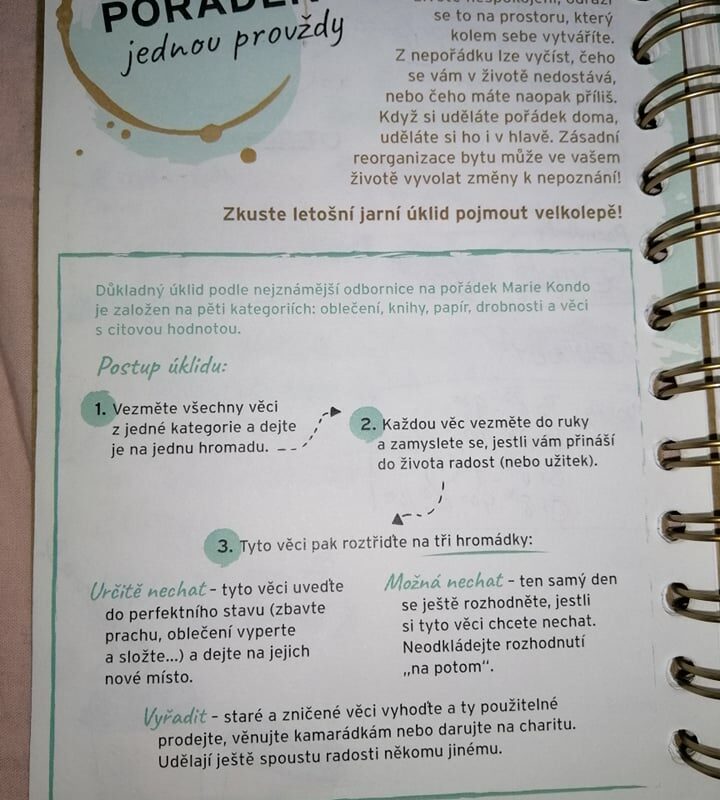 jednou provždy
se to na prostoru, který
kolem sebe vytváříte.
Z nepořádku lze vyčíst, čeho
se vám v životě nedostává,
nebo čeho máte naopak příliš.
Když si uděláte pořádek doma,
uděláte si ho i v hlavě. Zásadní
reorganizace bytu může ve vašem
životě vyvolat změny k nepoznání!
Zkuste letošní jarní úklid pojmout velkolepě!
Důkladný úklid podle nejznámější odbornice na pořádek Marie Kondo
je založen na pěti kategoriích: oblečení, knihy, papír, drobnosti a věci
s citovou hodnotou.
Postup úklidu:
1. Vezměte všechny věci
z jedné kategorie a dejte
je na jednu hromadu.
2. Každou věc vezměte do ruky
a zamyslete se, jestli vám přináší
do života radost (nebo užitek).
3. Tyto věci pak roztřiďte na tři hromádky:
Určitě nechat – tyto věci uveďte
do perfektního stavu (zbavte
prachu, oblečení vyperte
a složte...) a dejte na jejich
nové místo.
Možná nechat – ten samý den
se ještě rozhodněte, jestli
si tyto věci chcete nechat.
Neodkládejte rozhodnutí
„na potom“.
Vyřadit – staré a zničené věci vyhoďte a ty použitelné
prodejte, věnujte kamarádkám nebo darujte na charitu.
Udělají ještě spoustu radosti někomu jinému.